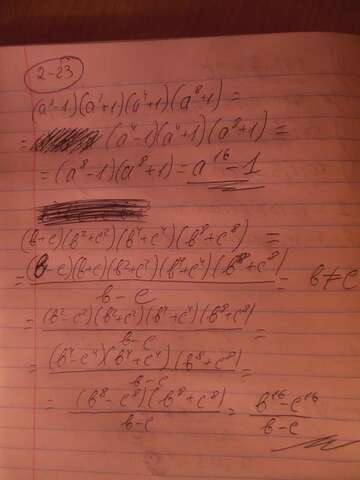 2-23
(a²-1)(a²+1)(a⁴+1)(a⁸+1)=
= (a⁴-1)(a⁴+1)(a⁸+1)=
= (a⁸-1)(a⁸+1)=a¹⁶-1
(b-c)(b²+c²)(b⁴+c⁴)(b⁸+c⁸) =
= (b-c)(b+c)(b²+c²)(b⁴+c⁴)(b⁸+c⁸) = b≠c
b-c
= (b²-c²)(b²+c²)(b⁴+c⁴)(b⁸+c⁸) =
b-c
= (b⁴-c⁴)(b⁴+c⁴)(b⁸+c⁸) =
b-c
= (b⁸-c⁸)(b⁸+c⁸) = b¹⁶-c¹⁶
b-c b-c